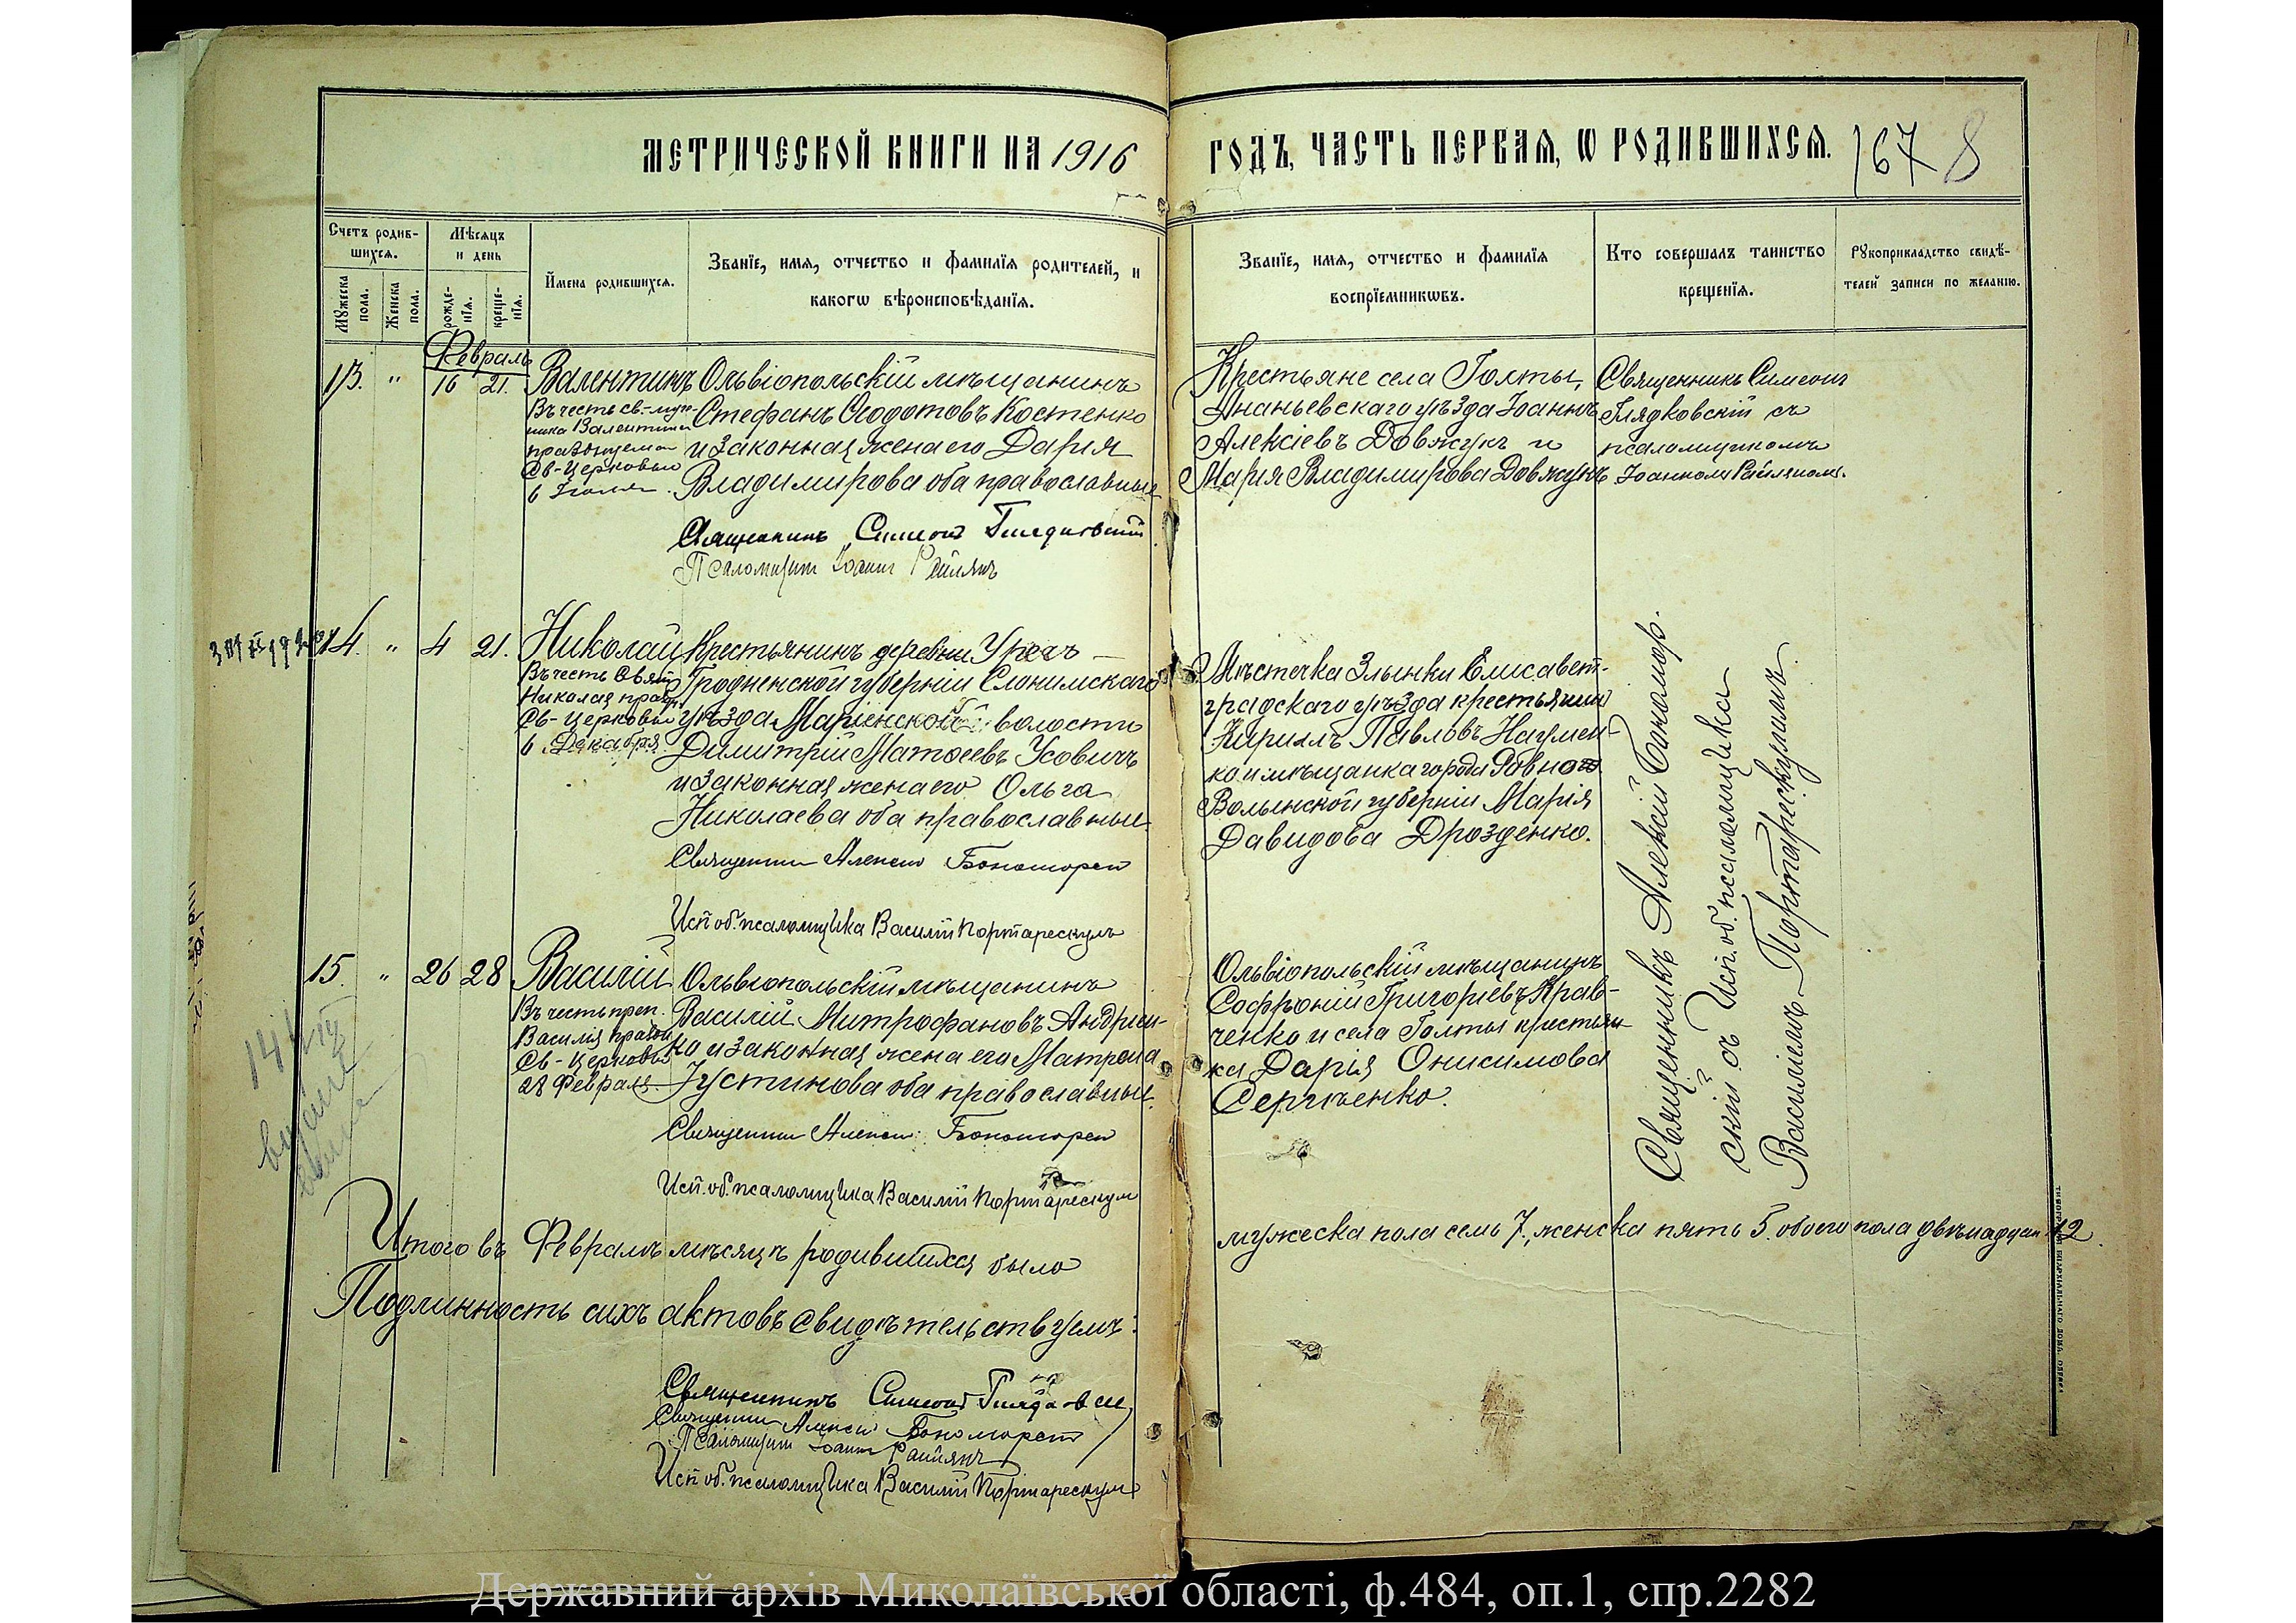 МЕТРИЧЕСКОЙ КНИГИ НА 1916
ГОДЪ, ЧАСТЬ ПЕРВАЯ, Ѡ РОДИВШИХСЯ.
167 8
Счетъ родив-
шихся.
Мѣсяцъ
и день
Мужеска
пола.
Женска
пола.
рожде-
нїя.
креще-
нїя.
Имена родившихся.
Званїе, имя, отчество и фамилїя родителей, и
какогѡ вѣроисповѣданїя.
Званїе, имя, отчество и фамилїя
воспрїемникѡвъ.
Кто совершалъ таинство
крещенїя.
Рукоприкладство свидѣ-
телей записи по желанїю.
Февраль
13. " 16 21.
Валентинъ
Въ честь св.-муч-
ника Валентина
празднуемаго
Св-Церковью
6 Іюля.
Ольвіопольскій мѣщанинъ
Стефанъ Ѳеодотовъ Костенко
и законная жена его Дарія
Владимирова оба православные
Священникъ Симеонъ Глядковскій
Псаломщикъ Іоаннъ Райлянъ
Крестьяне села Голты,
Ананьевскаго уѣзда Іоаннъ
Алексіевъ Довжукъ и
Марія Владимирова Довжукъ
Священникъ Симеонъ
Глядковскій съ
псаломщикомъ
Іоанномъ Райляномъ.
14. " 4 21.
Николай
Въ честь Свят.
Николая праздн.
Св-Церковью
6 Декабря.
Крестьянинъ деревни
Гродненской губерніи Слонимскаго
уѣзда Маріенской волости
Димитрій Матѳеевъ Усовичъ
и законная жена его Ольга
Николаева оба православные.
Священникъ Алексій
Исп. об. псаломщика Василій Портарескулъ
Мѣстечка Злынки Елисавет-
градскаго уѣзда крестьянинъ
Кириллъ Павловъ Наумен-
ко и мѣщанка города Ровно
Волынской губерніи Марія
Давидова Дрозденко.
15. " 26 28
Василій
Въ честь преп.
Василія праздн
Св-Церковью
28 Февраля.
Ольвіопольскій мѣщанинъ
Василій Митрофановъ Андреен-
ко и законная жена его Матрона
Іустинова оба православные.
Священникъ Алексій
Исп. об. псаломщика Василій Портарескулъ
Ольвіопольскій мѣщанинъ
Софроній Григоріевъ Крав-
ченко и села Голты крестьян-
ка Дарія Онисимова
Сергѣенко.
Священникъ Алексій
скій съ Исп. об. псаломщика
Василіемъ Портарескуломъ.
Итого въ Февралѣ мѣсяцѣ родившихся было
мужеска пола семь 7, женска пять 5. обоего пола двѣнадцать 12.
Подлинность сихъ актовъ свидѣтельствуемъ:
Священникъ Симеонъ
Священникъ Алексій
Псаломщикъ Іоаннъ Райлянъ
Исп. об. псаломщика Василій Портарескулъ
Державний архів Миколаївської області, ф.484, оп.1, спр.2282